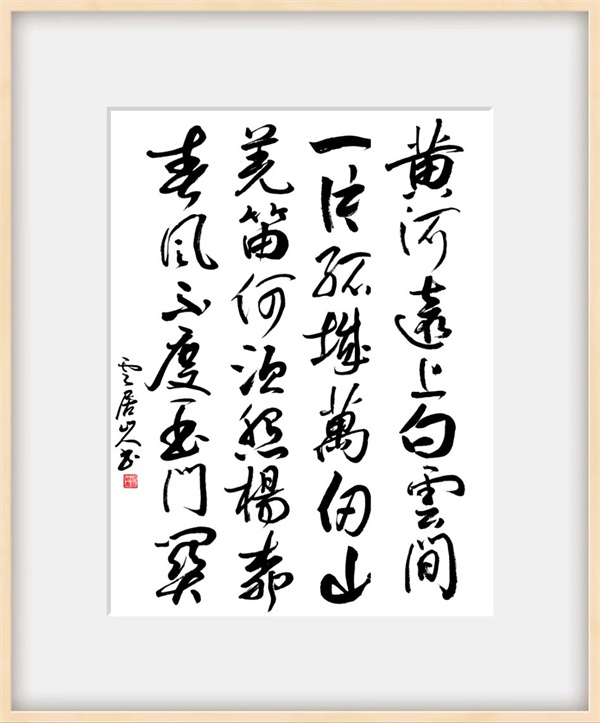 黄河遠上白雲間
一片孤城萬仞山
羌笛何須怨楊柳
春風不度玉門關
雲居山人書